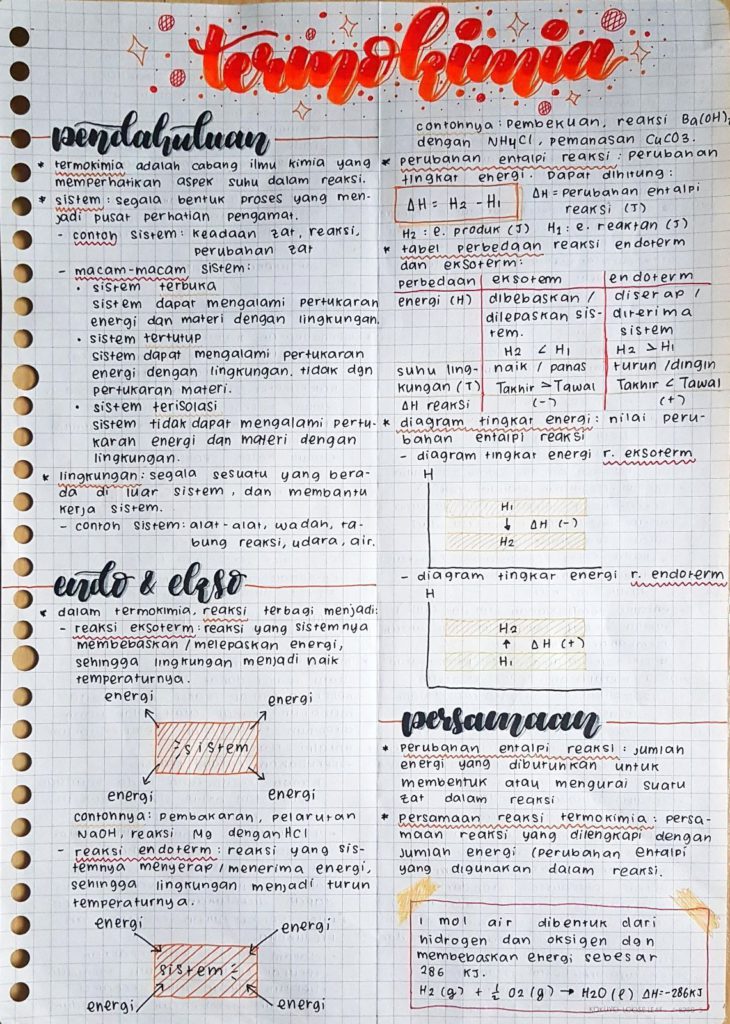 termokimia
pendahuluan
* termokimia adalah cabang ilmu kimia yang
memperhatikan aspek suhu dalam reaksi.
* sistem: segala bentuk proses yang men-
jadi pusat perhatian pengamat.
- contoh sistem: keadaan zat, reaksi,
perubahan zat
- macam-macam sistem:
• sistem terbuka
sistem dapat mengalami pertukaran
energi dan materi dengan lingkungan.
• sistem tertutup
sistem dapat mengalami pertukaran
energi dengan lingkungan. tidak dgn
pertukaran materi.
• sistem terisolasi
sistem tidak dapat mengalami pertu-
karan energi dan materi dengan
lingkungan.
* lingkungan: segala sesuatu yang bera-
da di luar sistem, dan membantu
kerja sistem.
- contoh sistem: alat-alat, wadah, ta-
bung reaksi, udara, air.
endo & ekso
* dalam termokimia, reaksi terbagi menjadi:
- reaksi eksoterm: reaksi yang sistemnya
membebaskan/melepaskan energi,
sehingga lingkungan menjadi naik
temperaturnya.
energi energi
sistem
energi energi
contohnya: pembakaran, pelarutan
NaOH, reaksi Mg dengan HCl
- reaksi endoterm: reaksi yang sis-
temnya menyerap/menerima energi,
sehingga lingkungan menjadi turun
temperaturnya.
energi energi
sistem
energi energi
contohnya: pembekuan, reaksi Ba(OH)2
dengan NH4Cl, pemanasan CuCO3.
* perubahan entalpi reaksi: perubahan
tingkat energi. Dapat dihitung:
ΔH = H2 - H1
ΔH = perubahan entalpi
reaksi (J)
H2: e. produk (J) H1: e. reaktan (J)
* tabel perbedaan reaksi endoterm
dan eksoterm:
perbedaan eksotem endoterm
energi (H) dibebaskan / diserap /
dilepaskan sis- diterima
trem. sistem
H2 < H1 H2 > H1
suhu ling- naik / panas turun /dingin
kungan (T) Takhir > Tawal Takhir < Tawal
ΔH reaksi (-) (+)
* diagram tingkat energi: nilai peru-
bahan entalpi reaksi
- diagram tingkat energi r. eksoterm
H
H1
↓ ΔH (-)
H2
- diagram tingkat energi r. endoterm
H
H2
↑ ΔH (+)
H1
persamaan
* perubahan entalpi reaksi: jumlah
energi yang dibutuhkan untuk
membentuk atau mengurai suatu
zat dalam reaksi
* persamaan reaksi termokimia: persa-
maan reaksi yang dilengkapi dengan
jumlah energi (perubahan entalpi
yang digunakan dalam reaksi.
1 mol air dibentuk dari
hidrogen dan oksigen dgn
membebaskan energi sebesar
286 KJ.
H2 (g) + 1/2 O2 (g) → H2O (l) ΔH=-286KJ
KOKUYO LOOSE LEAF